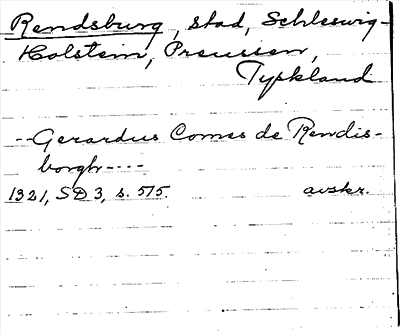 Rendsburg, stad, Schleswig-
Holstein, Preussen,
Tyskland
--Gerardus Comes de Rendis-
borgh----
1321, SD 3, s. 575. avskr.